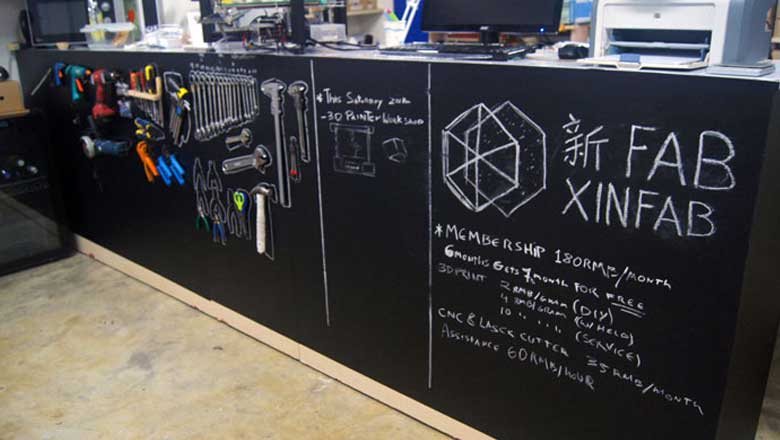 * This Saturday 2pm
- 3D Printer Workshop
新 FAB
XINFAB
* MEMBERSHIP 180RMB/MONTH
6 MONTHS GETS 7 MONTH FOR FREE
3D PRINT 2 RMB/GRAM (DIY)
4 RMB/GRAM (W/HELP)
10 " " " (SERVICE)
CNC & LASER CUTTER 35 RMB/MONTH
ASSISTANCE 60RMB/HOUR